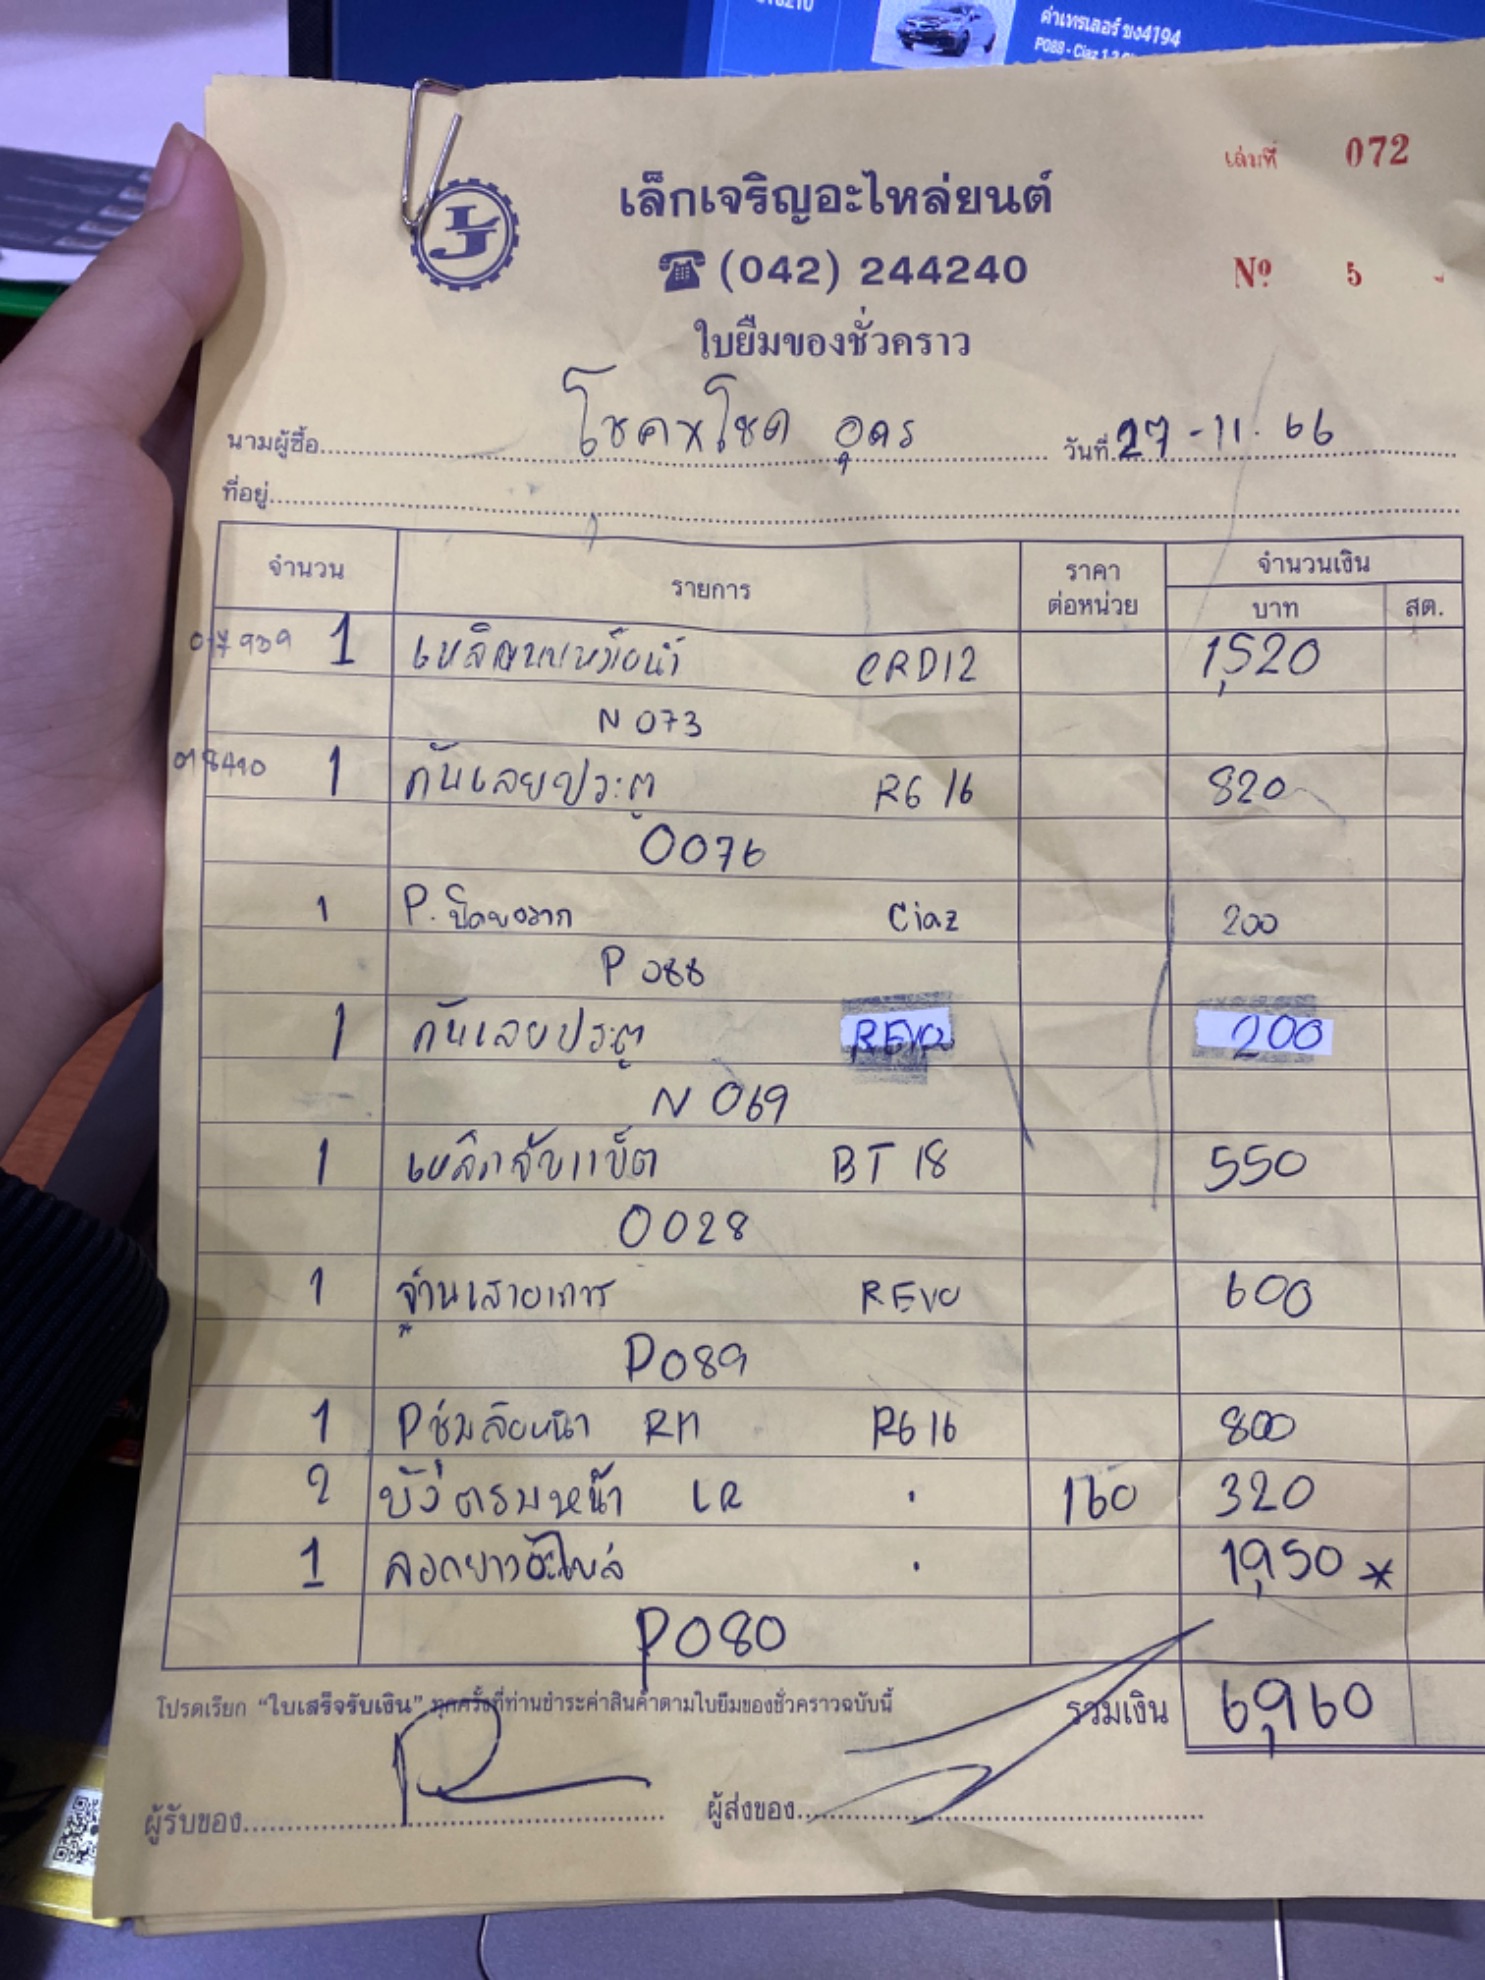 ค่าเทรลเลอร์ ขง4194
P088 - Ciaz 1.2
เล่มที่ 072
LJ
เล็กเจริญอะไหล่ยนต์
(042) 244240
Nº 5
ใบยืมของชั่วคราว
นามผู้ซื้อ โชค×โชค อุดร วันที่ 27-11.66
ที่อยู่
จำนวน รายการ ราคาต่อหน่วย จำนวนเงิน
บาท สต.
1 CRD12 1,520
N 073
1 กันเลยประตู RG 16 820
0076
1 P. Ciaz 200
P 088
1 กันเลยประตู REVO 200
N 069
1 BT 18 550
0028
1 REVO 600
P089
1 P RH RG 16 800
2 หน้า LR 160 320
1 1,950 *
P080
โปรดเรียก “ใบเสร็จรับเงิน” ทุกครั้งที่ท่านชำระค่าสินค้าตามใบยืมของชั่วคราวฉบับนี้
รวมเงิน 6,960
ผู้รับของ ผู้ส่งของ